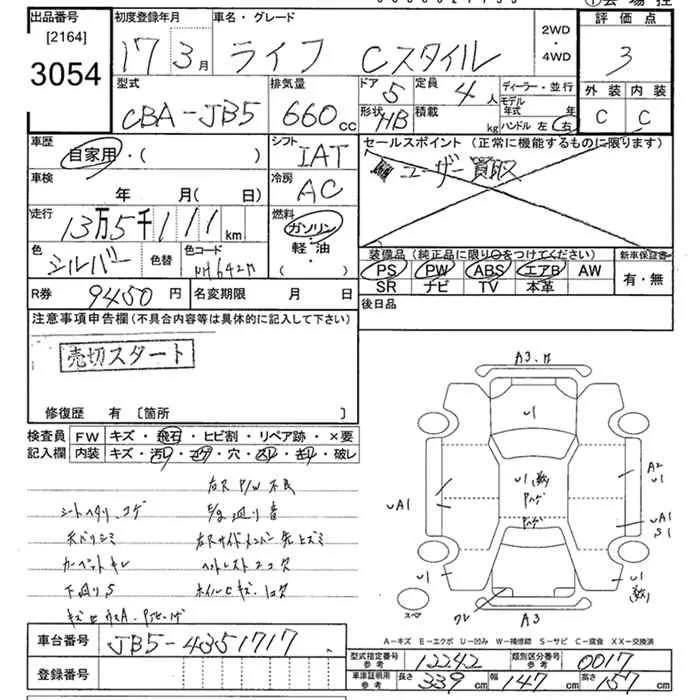 出品番号 初度登録年月 車名・グレード 2WD・4WD 評価点
[2164]
3054 17 3月 ライフ Cスタイル 3
型式 排気量 ドア 定員 ディーラー・並行 外装 内装
CBA-JB5 660cc 5 4人 モデル年式 年 C C
形状 HB 積載 kg ハンドル 左 右
車歴 自家用・( ) シフト IAT セールスポイント(正常に機能するものに限ります)
車検 年 月( 日) 冷房 AC ユーザー買取
走行 13万5千111km 燃料 ガソリン 軽・油 ・( )
装備品(純正品に限り○をつけてください) 新車保証書
色 シルバー 色替 色コード PS PW ABS エアB AW 有・無
SR ナビ TV 本革
R券 9450円 名変期限 月 日 後日品
注意事項申告欄(不具合内容等は具体的に記入して下さい)
売切スタート
修復歴 有 [箇所 ]
検査員記入欄 FW キズ・飛石・ヒビ割・リペア跡・×要
内装 キズ・汚レ・コゲ・穴・スレ・キレ・破レ
P/W 不良
シートヘタリ、コゲ
カーペットキレ
下廻りS
A3
U1
U1
A2
U1
UA1
UA1
S1
U1
U1
スペア
ワレ
A3
A-キズ E-エクボ U-凹み W-補修跡 S-サビ C-腐食 XX-交換済
車台番号 JB5-4351717 型式指定番号 参考 12242 類別区分番号 参考 0017
登録番号 車庫証明用 参考 長さ 339cm 幅 147cm 高さ 157cm